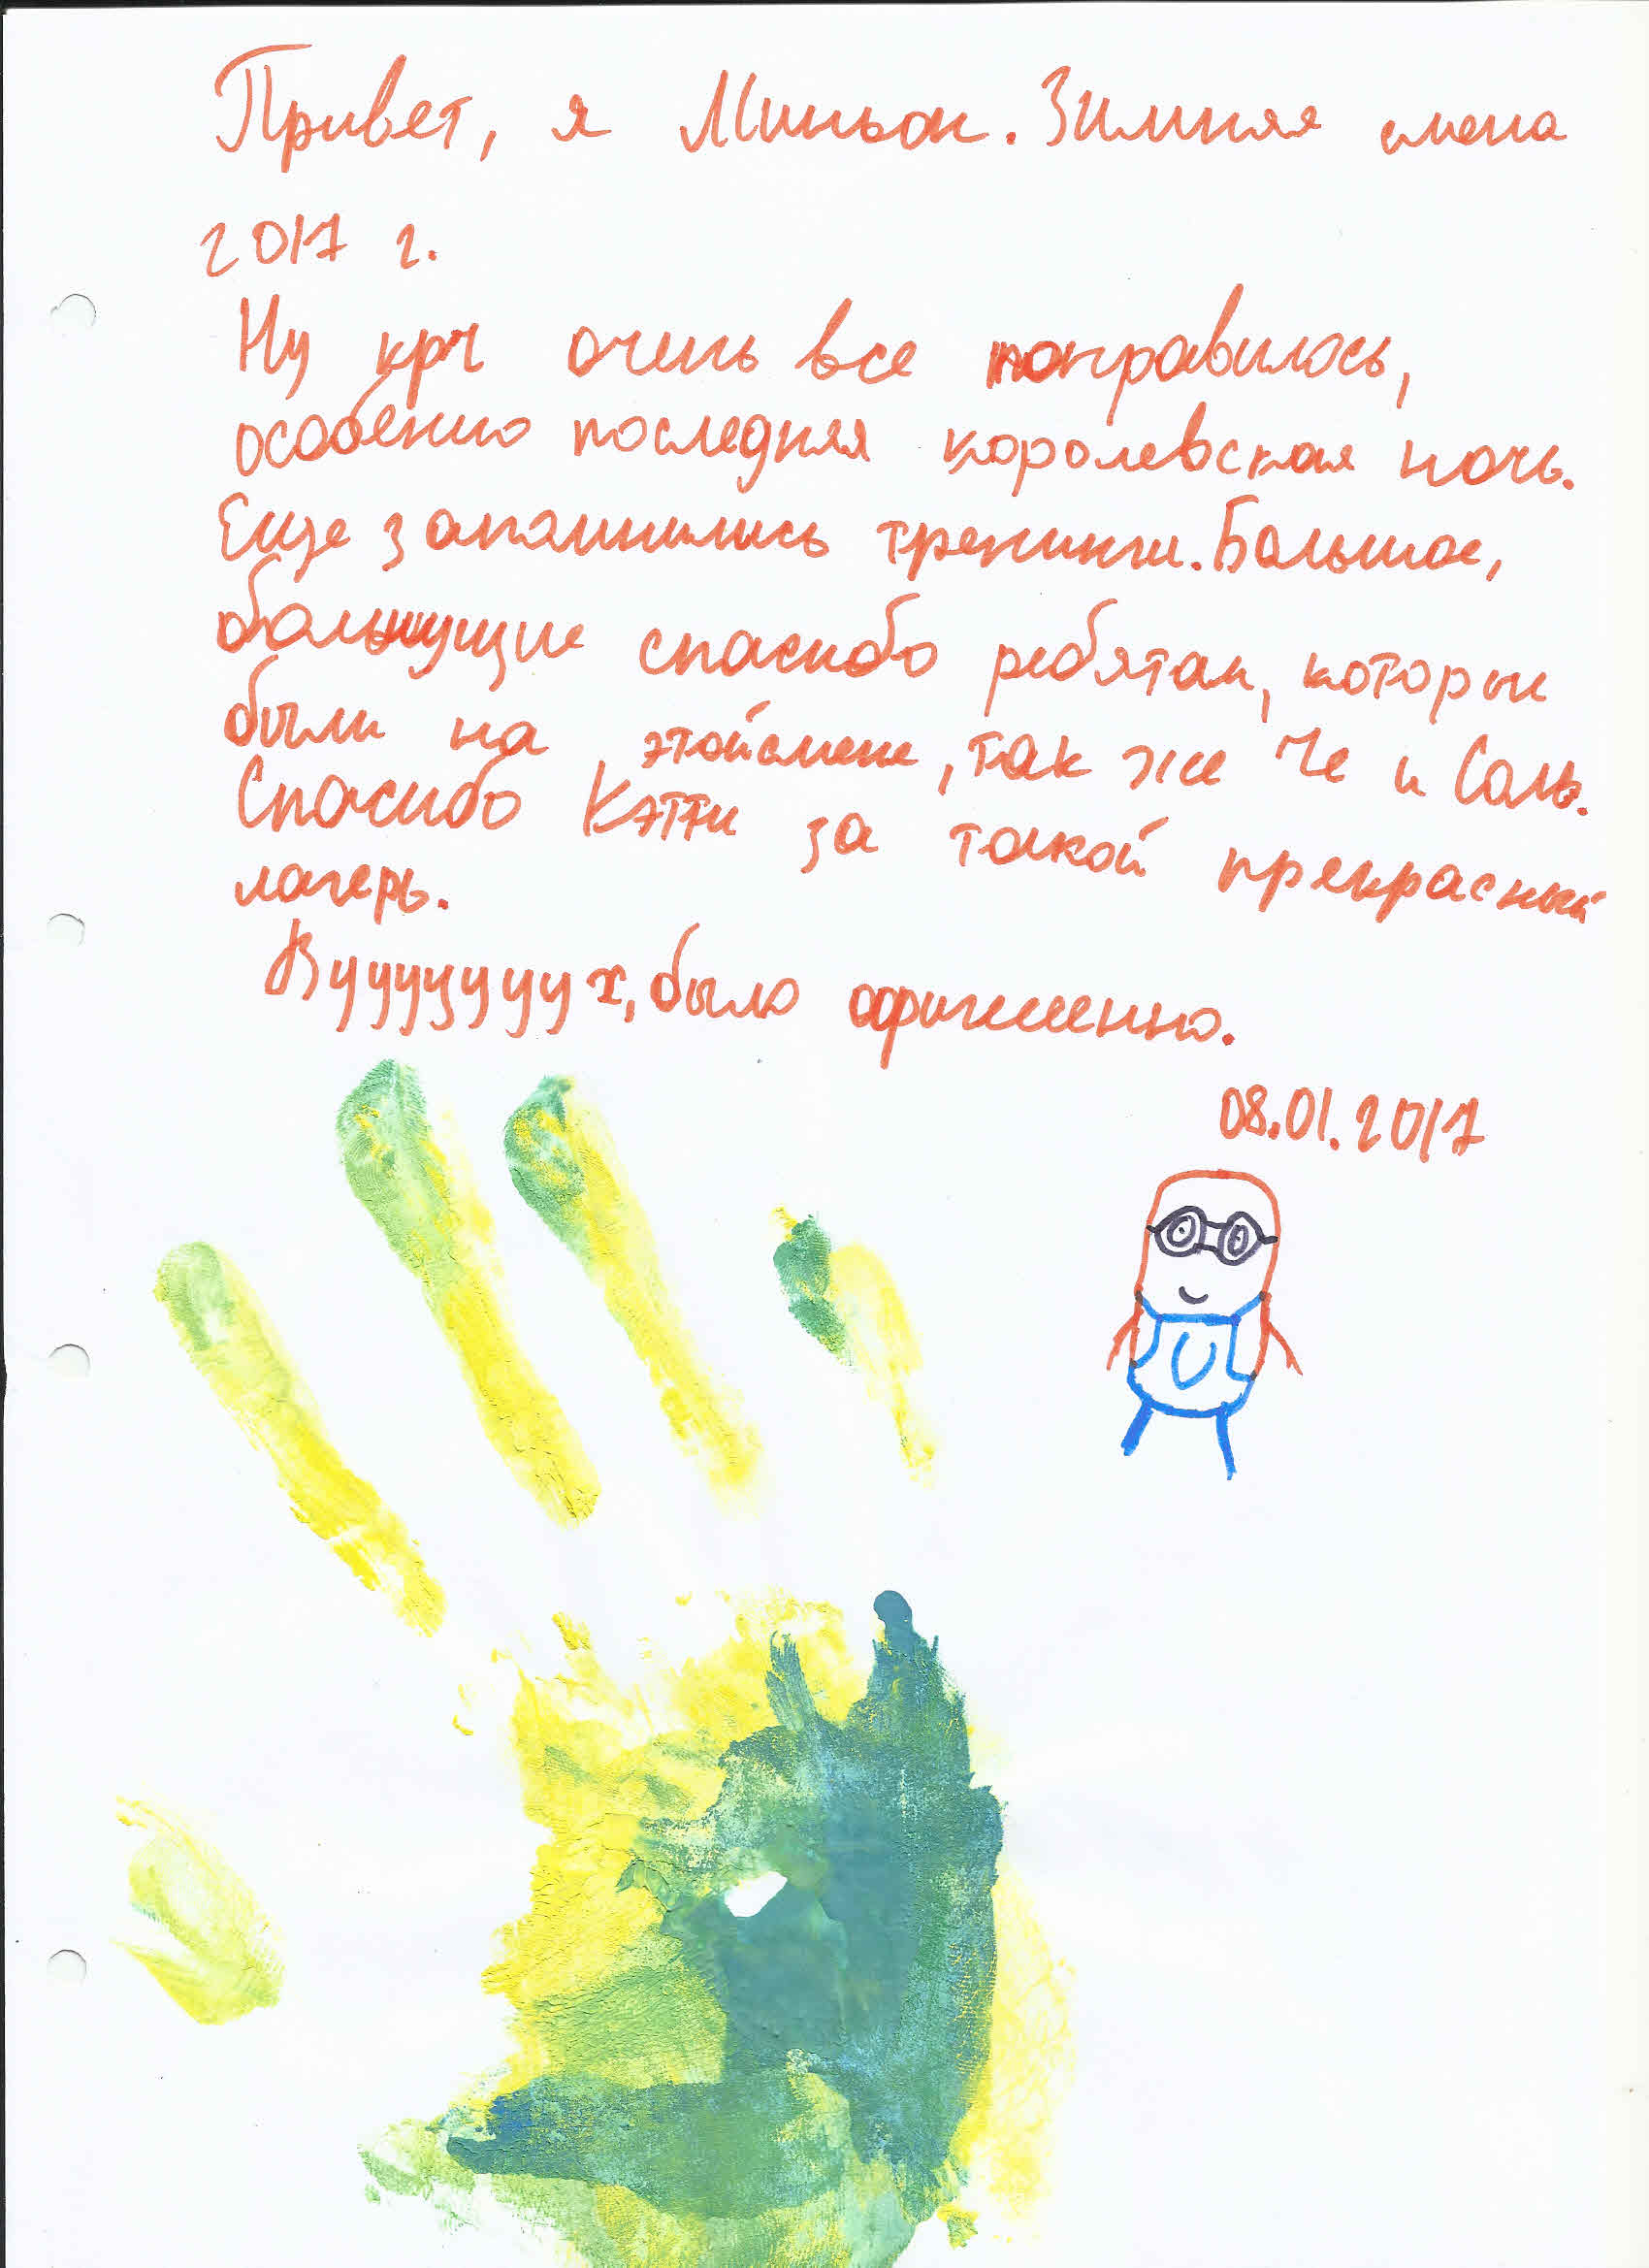 Привет, я Миньон. Зимняя смена
2017 г.
Ну крч очень все понравилось,
особенно последняя королевская ночь.
Еще запомнились тренинги. Большое,
большущие спасибо ребятам, которые
были на этойсмене, так же Че и Соль.
Спасибо Кэтти за такой прекрасный
лагерь.
Вуууууууух, было офигеенно.
08.01.2017